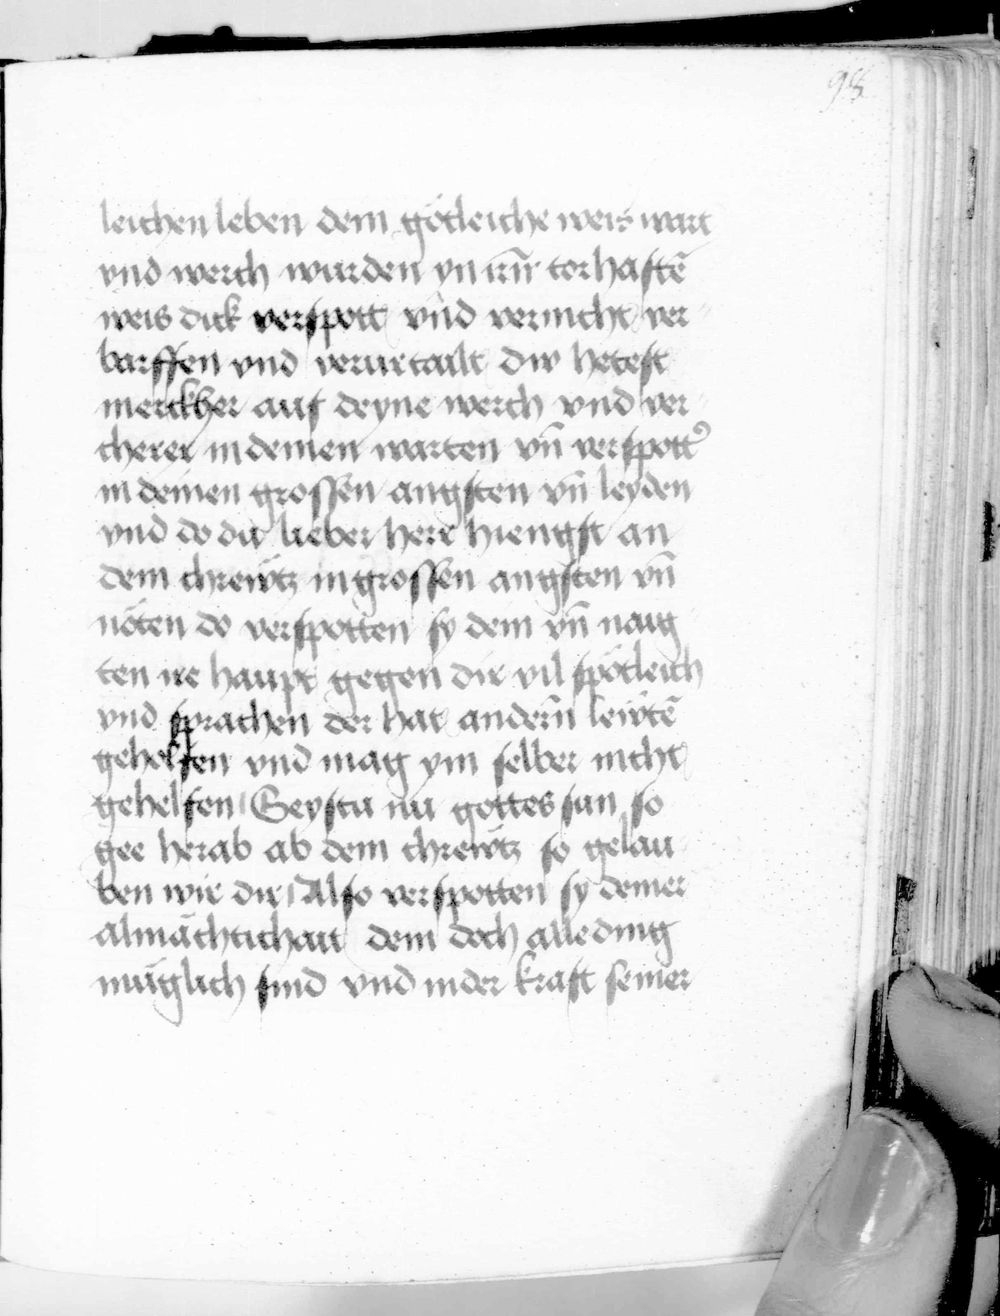 98
leichen leben dem götleiche weis wart
vnd werch wurden yn irr̄ torhaftē
weis dick verspott vn̄d vernicht ver
barffen vnd verurtailt dw hetest
merckher auf deyne werch vnd ver
cherer in deinen warten vn̄ verspott͛
in deinen grossen angsten vn̄ leyden
vnd do du lieber herr hiengst an
dem chrewtz in grossen angsten vn̄
nöten do verspotten sy dein vn̄ naig
ten ire haupt gegen dir vil spötleich
vnd sprachen der hat andern̄ lewtē
gehelffen vnd mag ym selber nicht
gehelfen Seystu nu gottes sun so
gee herab ab dem chrewtz so gelau
ben wir dir Also verspotten sy deiner
almächtichait dem doch alle ding
müglich sind vnd in der kraft seiner